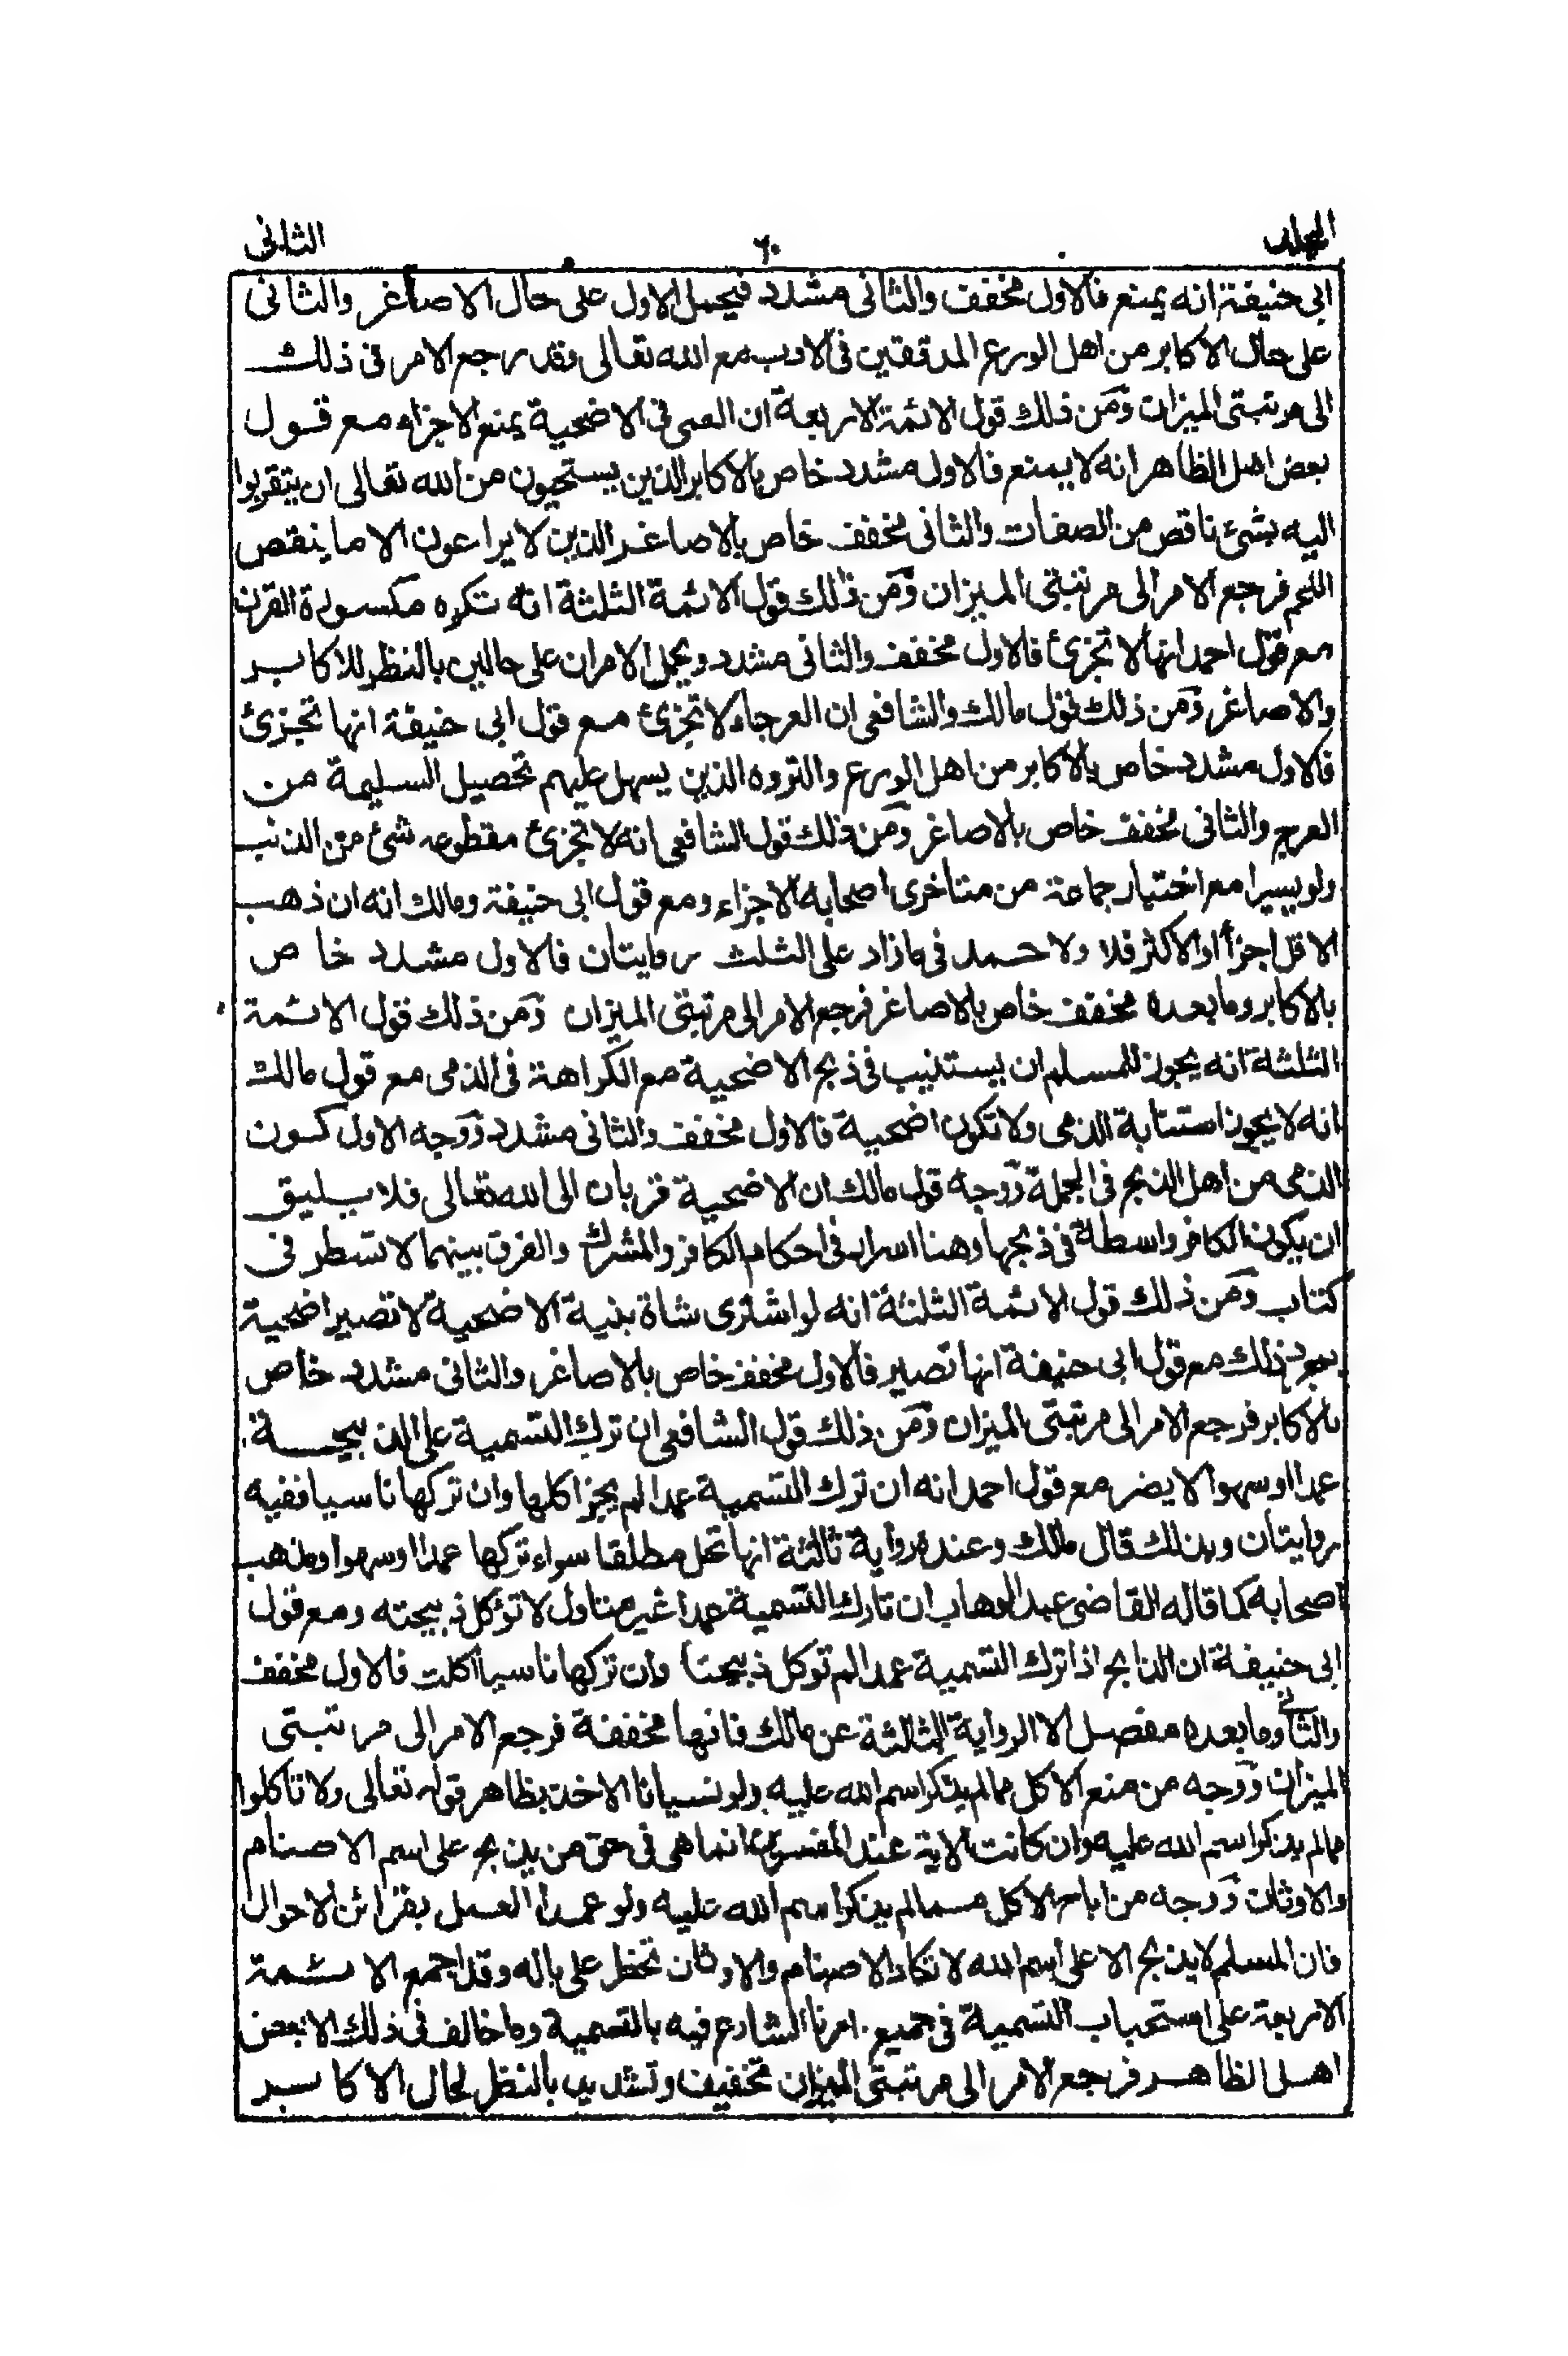 المجلد ٦٠ الثانى
ابى حنيفة انه يمنع فالاول مخفف والثانى مشدد فيحمل الاول على حال الاصاغر والثانى
على حال الاكابر من اهل الورع المدققين فى الادب مع الله تعالى فقد رجع الامر فى ذلك
الى مرتبتى الميزان ومن ذلك قول الائمة الاربعة ان العمى فى الاضحية يمنع الاجزاء مع قول
بعض اهل الظاهر انه لا يمنع فالاول مشدد خاص بالاكابر الذين يستحيون من الله تعالى ان يتقربوا
اليه بشئ ناقص من الصفات والثانى مخفف خاص بالاصاغر الذين لا يراعون الا ما ينقص
اللحم فرجع الامر الى مرتبتى الميزان ومن ذلك قول الائمة الثلثة انه تكره مكسورة القرن
مع قول احمد انها لا تجزئ فالاول مخفف والثانى مشدد ويحمل الامران على حالين بالنظر للاكابر
والاصاغر ومن ذلك قول مالك والشافعى ان العرجاء لا تجزئ مع قول ابى حنيفة انها تجزئ
فالاول مشدد خاص بالاكابر من اهل الورع والثروه الذين يسهل عليهم تحصيل السليمة من
العرج والثانى مخفف خاص بالاصاغر ومن ذلك قول الشافعى انه لا تجزئ مقطوعه شئ من الذنب
ولو يسيرا مع اختيار جماعة من متاخرى اصحابه الاجزاء ومع قول ابى حنيفة ومالك انه ان ذهب
الاقل اجزأ او الاكثر فلا ولاحمد فى ما زاد على الثلث روايتان فالاول مشدد خاص
بالاكابر وما بعده مخفف خاص بالاصاغر فرجع الامر الى مرتبتى الميزان ومن ذلك قول الائمة
الثلثة انه يجوز للمسلم ان يستنيب فى ذبح الاضحية مع الكراهة فى الذمى مع قول مالك
انه لا يجوز استنابة الذمى ولا تكون اضحية فالاول مخفف والثانى مشدد ووجه الاول كون
الذمى من اهل الذبح فى الجملة ووجه قول مالك ان الاضحية قربان الى الله تعالى فلا يليق
ان يكون الكافر واسطة فى ذبحها وهنا اسرار فى احكام الكافر والمشرك والفرق بينهما لا تسطر فى
كتاب ومن ذلك قول الائمة الثلثة انه لو اشترى شاة بنية الاضحية لا تصير اضحية
بمجرد ذلك مع قول ابى حنيفة انها تصير فالاول مخفف خاص بالاصاغر والثانى مشدد خاص
بالاكابر فرجع الامر الى مرتبتى الميزان ومن ذلك قول الشافعى ان ترك التسمية على الذبيحة
عمدا او سهوا لا يضر مع قول احمد انه ان ترك التسمية عمدا لم يجز اكلها وان تركها ناسيا ففيه
روايتان وبذلك قال مالك وعنده رواية ثالثة انها تحل مطلقا سواء تركها عمدا او سهوا ومذهب
اصحابه كما قاله القاضى عبد الوهاب ان تارك التسمية عمدا غير متاول لا تؤكل ذبيحته ومع قول
ابى حنيفة ان الذابح اذا ترك التسمية عمدا لم توكل ذبيحته وان تركها ناسيا اكلت فالاول مخفف
والثانى وما بعده مفصل الا الرواية الثالثة عن مالك فانها مخففة فرجع الامر الى مرتبتى
الميزان ووجه من منع الاكل مما لم يذكر اسم الله عليه ولو نسيانا الاخذ بظاهر قوله تعالى ولا تاكلوا
مما لم يذكر اسم الله عليه وان كانت الاية عند المفسرين انما هى فى حق من يذبح على اسم الاصنام
والاوثان ووجه من اباح الاكل مما لم يذكر اسم الله عليه ولو عمدا العمل بقرائن الاحوال
فان المسلم لا يذبح الا على اسم الله لا تكاد الاصنام والاوثان تخطر على باله وقد اجمع الائمة
الاربعة على استحباب التسمية فى جميع امرنا الشارع فيه بالتسمية وما خالف فى ذلك الا بعض
اهل الظاهر فرجع الامر الى مرتبتى الميزان تخفيف وتشديد بالنظر لحال الاكابر